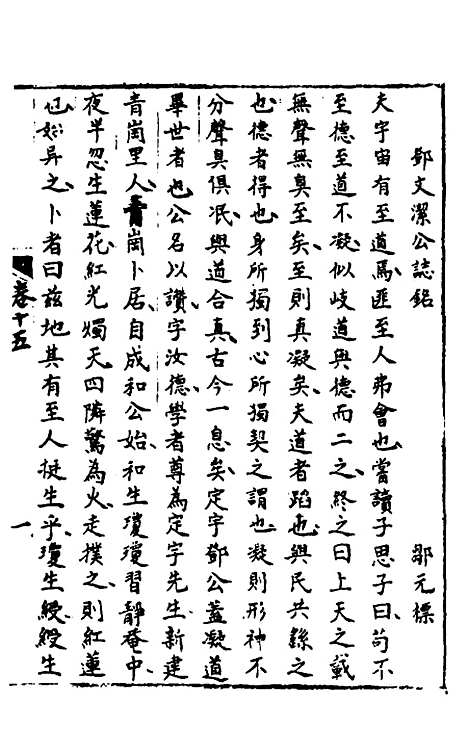 鄧文潔公誌銘　鄒元標
夫宇宙有至道焉匪至人弗會也嘗讀子思子曰苟不
至德至道不凝似岐道與德而二之終之曰上天之載
無聲無臭至矣至則真凝矣夫道者蹈也與民共繇之
也德者得也身所獨到心所獨契之謂也凝則形神不
分聲臭俱泯與道合真古今一息矣定宇鄧公蓋凝道
畢世者也公名以讚字汝德學者尊為定宇先生新建
青崗里人青崗卜居自成和公始和生瓊瓊習靜菴中
夜半忽生蓮花紅光燭天四隣驚為火走撲之則紅蓮
也始异之卜者曰茲地其有至人挺生乎瓊生綬綬生
卷十五　一